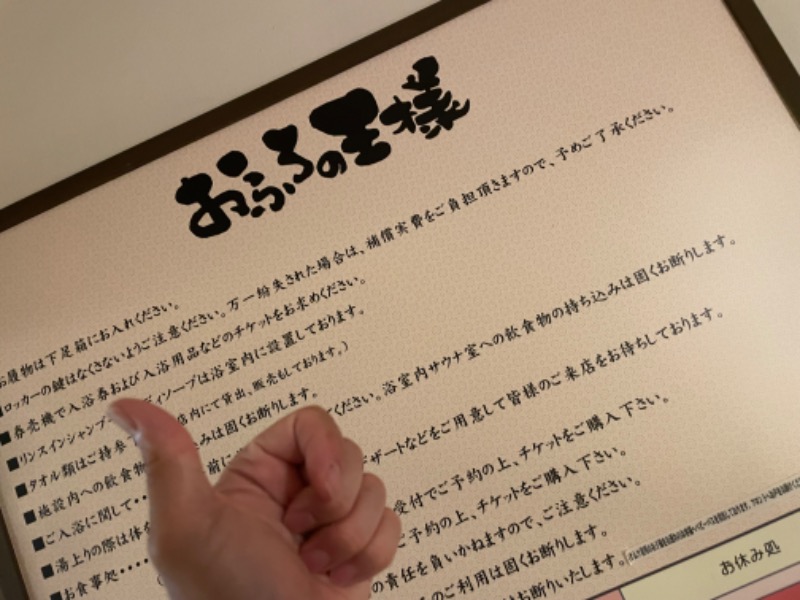 おふろの王様
お履物は下足箱にお入れください。
ロッカーの鍵はなくさないようご注意ください。万一紛失された場合は、補償実費をご負担頂きますので、予めご了承ください。
■券売機で入浴券および入浴用品などのチケットをお求めください。
■リンスインシャンプ ディソープは浴室内に設置しております。
■タオル類はご持参 店内にて貸出、販売もしております。)
■施設内への飲食物 みは固くお断りします。
■ご入浴に関して・・ 前に ください。浴室内サウナ室への飲食物の持ち込みは固くお断りします。
■湯上りの際は体を
■お食事処・・・・ ザートなどをご用意して皆様のご来店をお待ちしております。
受付でご予約の上、チケットをご購入下さい。
ご予約の上、チケットをご購入下さい。
の責任を負いかねますので、ご注意ください。
のご利用は固くお断りします。
はお断りいたします。
お休み処